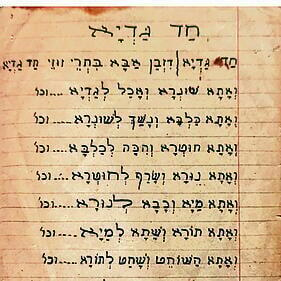 חַד גַּדְיָא
חַד גַּדְיָא דִּזְבַן אַבָּא בִּתְרֵי זוּזֵי חַד גַּדְיָא
וְאָתָא שׁוּנְרָא וְאָכַל לְגַּדְיָא .....וכו
וְאָתָא כַּלְבָּא וְנָשַׁךְ לְשׁוּנְרָא....וכו
וְאָתָא חוּטְרָא וְהִכָּה לְכַלְבָּא....וכו
וְאָתָא נוּרָא וְשָׂרַף לְחוּטְרָא....וכו
וְאָתָא מַיָּא וְכָבָא לְנוּרָא.....וכו
וְאָתָא תוֹרָא וְשָׁתָא לְמַיָּא.....וכו
וְאָתָא הַשּׁוֹחֵט וְשָׁחַט לְתוֹרָא....וכו